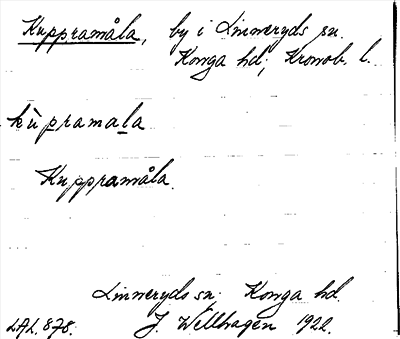 Kuppramåla, by i Linneryds sn.
Konga hd; Kronob. l.
kùpramala
Kuppramåla
Linneryds sn; Konga hd.
LAL. 878. J. Wellhagen 1922.